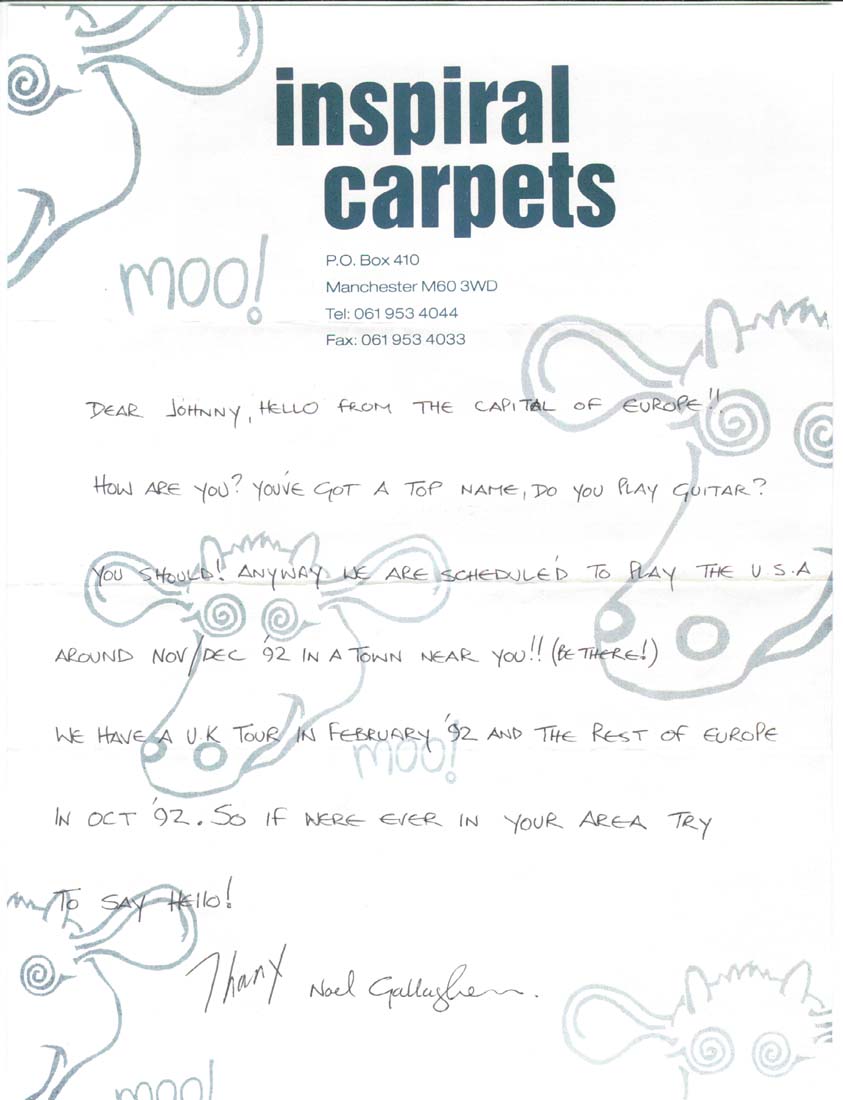 inspiral
carpets
moo!
P.O. Box 410
Manchester M60 3WD
Tel: 061 953 4044
Fax: 061 953 4033
DEAR JOHNNY, HELLO FROM THE CAPITAL OF EUROPE!!
HOW ARE YOU? YOU'VE GOT A TOP NAME, DO YOU PLAY GUITAR?
YOU SHOULD! ANYWAY WE ARE SCHEDULED TO PLAY THE U.S.A
AROUND NOV/DEC '92 IN A TOWN NEAR YOU!! (BE THERE!)
WE HAVE A U.K TOUR IN FEBRUARY '92 AND THE REST OF EUROPE
moo!
IN OCT '92. SO IF WERE EVER IN YOUR AREA TRY
TO SAY HELLO!
Thanx Noel Gallagher.
moo!